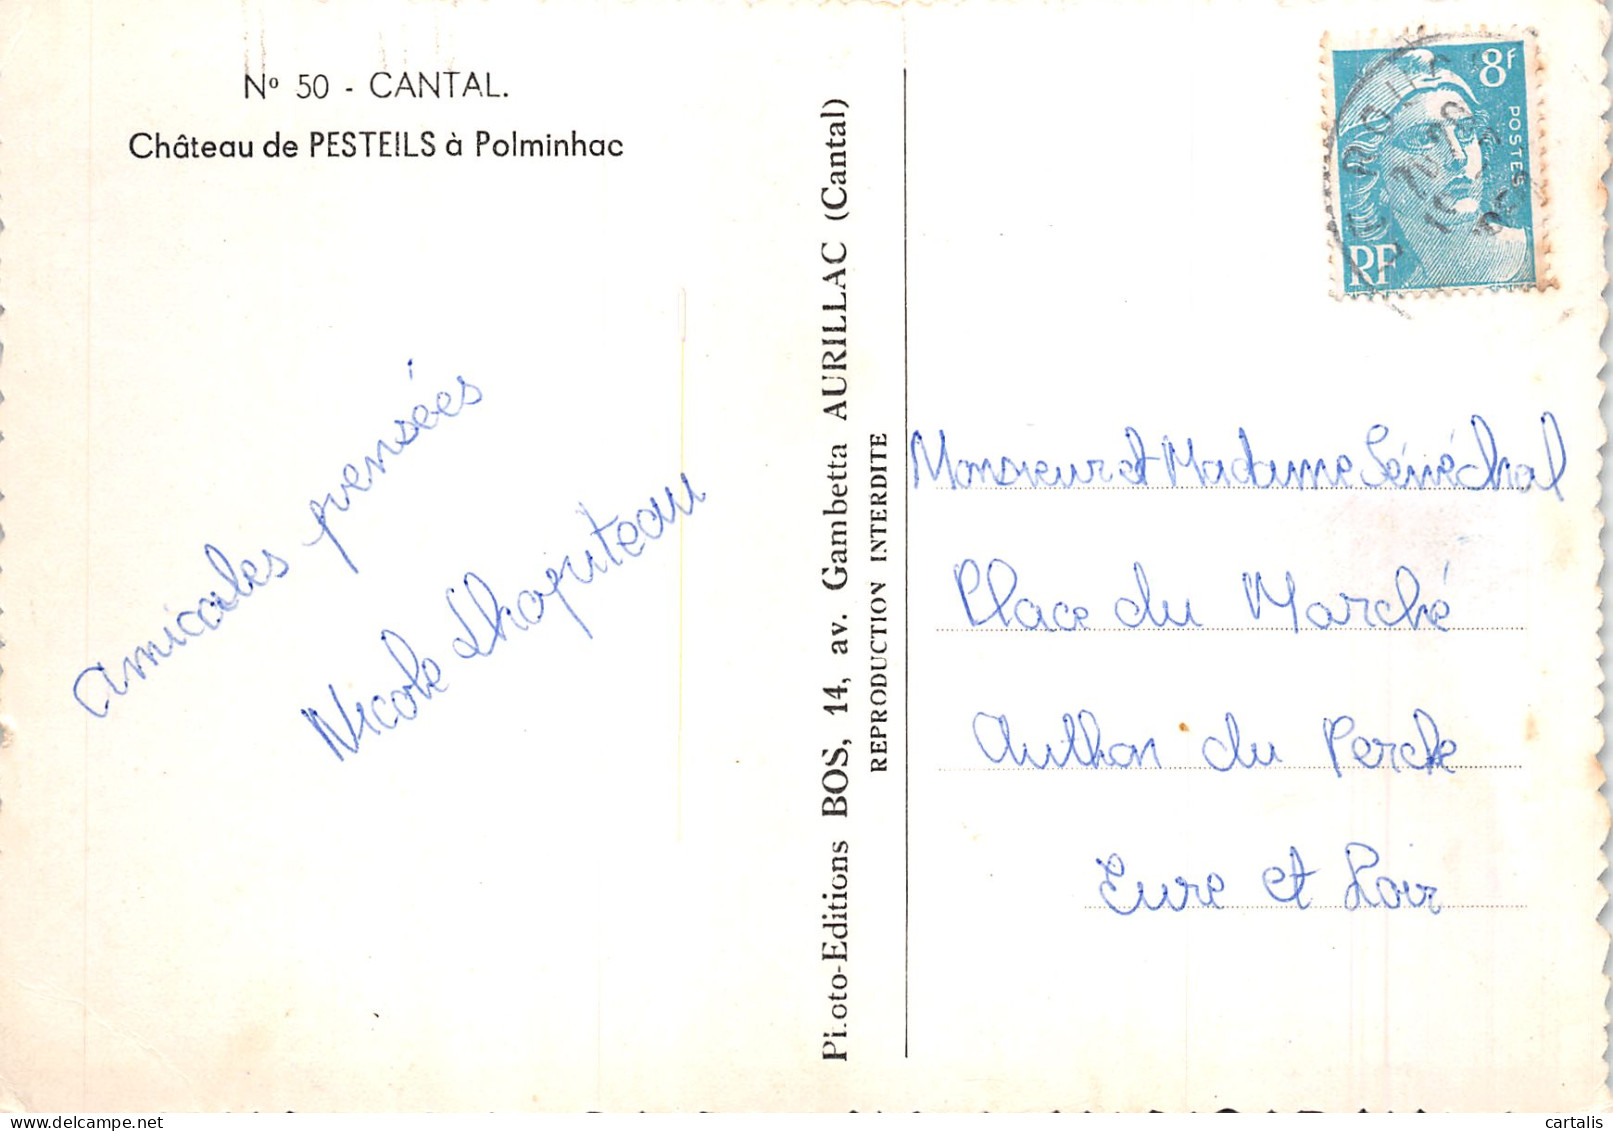 Nº 50 - CANTAL.
Château de PESTEILS à Polminhac
amicales pensées
Nicole Lhoputeau
Photo-Editions BOS, 14, av. Gambetta AURILLAC (Cantal)
REPRODUCTION INTERDITE
8f
POSTES
RF
Monsieur et Madame Sénéchal
Place du Marché
Authon du Perche
Eure et Loir
cartalis